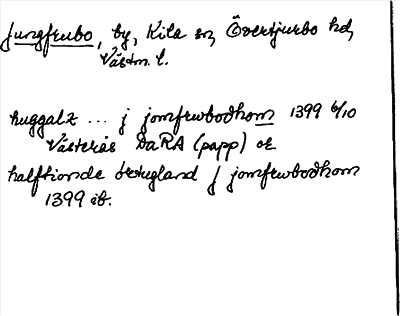 Jungfrubo, by, Kila sn, Övertjurbo hd,
Västm. l.
huggalz ... j jomfrwbodhom 1399 6/10
Västerås DaRA (papp) ok
halftionde øresland j jomfrwbodhom
1399 ib.